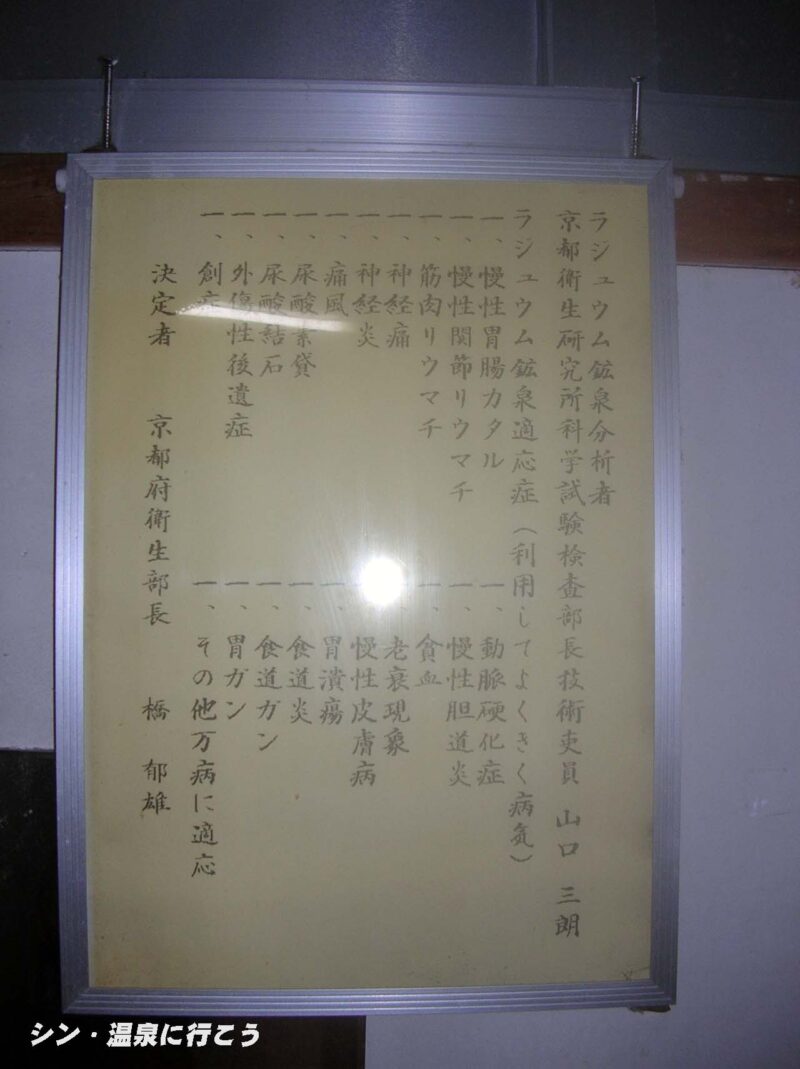 ラジュウム鉱泉分析者
京都衛生研究所科学試験検査部長技術吏員 山口 三朗
ラジュウム鉱泉適応症（利用してよくきく病気）
一、慢性胃腸カタル
一、慢性関節リウマチ
一、筋肉リウマチ
一、神経痛
一、神経炎
一、痛風
一、尿酸素貸
一、尿酸結石
一、外傷性後遺症
一、創
一、動脈硬化症
一、慢性胆道炎
一、貧血
老衰現象
慢性皮膚病
一、胃潰瘍
一、食道炎
一、食道ガン
一、胃ガン
一、その他万病に適応
決定者 京都府衛生部長 橋 郁雄
シン・温泉に行こう